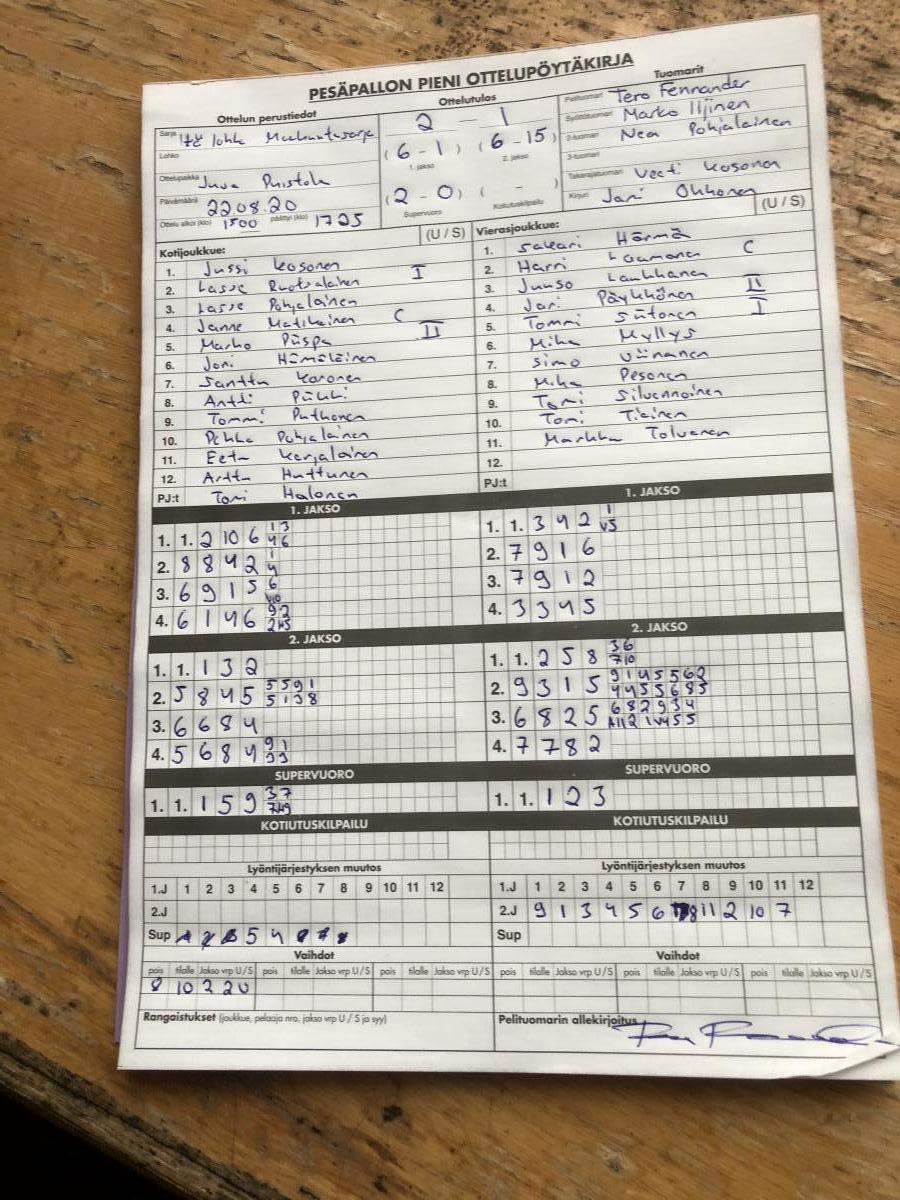 PESÄPALLON PIENI OTTELUPÖYTÄKIRJA
Ottelun perustiedot
Sarja lohko Maakuntasarja
Lohko
Ottelupaikka Juva Puistola
Päivämäärä 22.08.20
Ottelu alkoi (klo) 1500 päättyi (klo) 1725
Ottelutulos
2 - 1
(6 - 1) (6 - 15)
1. jakso 2. jakso
(2 - 0) ( - )
Supervuoro Kotiutuskilpailu
Tuomarit
Pelituomari Tero Fennander
Syöttötuomari Marko Iljinen
2-tuomari Nea Pohjalainen
3-tuomari
Takarajatuomari Veeti Kosonen
Kirjuri Jari Okkonen
Kotijoukkue: (U / S)
1. Jussi Kosonen
2. Lasse Ruotsalainen I
3. Lasse Pohjalainen
4. Janne Matikainen C
5. Marko Piispa II
6. Joni Hämäläinen
7. Santtu Karonen
8. Antti Piikki
9. Tommi Puthonen
10. Pekka Pohjalainen
11. Eetu Karjalainen
12. Arttu Huttunen
PJ:t Toni Halonen
Vierasjoukkue: (U / S)
1. Sakari Härmä
2. Harri Laamanen C
3. Juuso Laukkanen
4. Jari Päykkönen II
5. Tommi Siitonen I
6. Mika Myllys
7. Simo Viinanen
8. Mika Pesonen
9. Tomi Silvennoinen
10. Tomi Tiainen
11. Markku Tolvanen
12.
PJ:t
1. JAKSO
1. 1. 2 10 6 1 3 4 6
2. 8 8 4 2 1 4
3. 6 9 1 5 6
4. 6 1 4 6 9 2
1. JAKSO
1. 1. 3 4 2 1 V5
2. 7 9 1 6
3. 7 9 1 2
4. 3 3 4 5
2. JAKSO
1. 1. 1 3 2
2. 5 8 4 5 5 5 9 1 5 1 3 8
3. 6 6 8 4
4. 5 6 8 4 9 1 3 3
2. JAKSO
1. 1. 2 5 8 3 6 7 10
2. 9 3 1 5 9 1 4 5 5 6 2 4 4 5 5 6 8 5
3. 6 8 2 5 6 8 2 9 3 4
4. 7 7 8 2
SUPERVUORO
1. 1. 1 5 9 3 7
SUPERVUORO
1. 1. 1 2 3
KOTIUTUSKILPAILU
KOTIUTUSKILPAILU
Lyöntijärjestyksen muutos
1.J 1 2 3 4 5 6 7 8 9 10 11 12
2.J
Sup 5 4
Lyöntijärjestyksen muutos
1.J 1 2 3 4 5 6 7 8 9 10 11 12
2.J 9 1 3 4 5 6 8 11 2 10 7
Sup
Vaihdot
pois tilalle Jakso vrp U / S pois tilalle Jakso vrp U / S pois tilalle Jakso vrp U / S
8 10 2 2U
Vaihdot
pois tilalle Jakso vrp U / S pois tilalle Jakso vrp U / S pois tilalle Jakso vrp U / S
Rangaistukset (joukkue, pelaaja nro, jakso vrp U / S ja syy)
Pelituomarin allekirjoitus